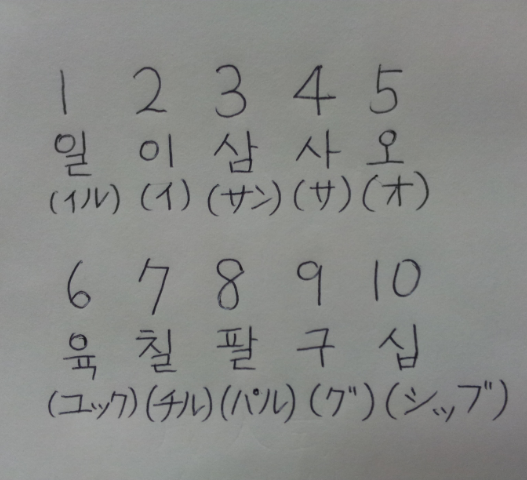 1 2 3 4 5
일 이 삼 사 오
(イル) (イ) (サン) (サ) (オ)
6 7 8 9 10
육 칠 팔 구 십
(ユック) (チル) (パル) (グ) (シッブ)